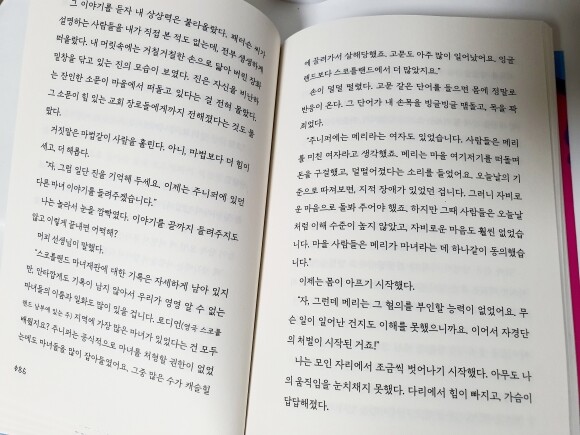 그 이야기를 듣자 내 상상력은 불타올랐다. 패터슨 씨가
설명하는 사람들을 내가 직접 본 적도 없는데, 전부 생생하게
떠올랐다. 내 머릿속에는 거칠거칠한 손으로 닳아 버린 장화
밑창을 닦고 있는 진의 모습이 보였다. 진은 자신을 비난하
는 잔인한 소문이 마을에서 떠돌고 있다는 걸 전혀 몰랐다.
그 소문이 힘 있는 교회 장로들에게까지 전해졌다는 것도 몰
랐다.
거짓말은 마법같이 사람을 홀린다. 아니, 마법보다 더 힘이
세고, 더 해롭다.
“자, 그럼 일단 진을 기억해 두세요. 이제는 주니퍼에 있던
다른 마녀 이야기를 들려주겠습니다.”
나는 놀라서 눈을 깜빡였다. 이야기를 끝까지 들려주지도
않고 이렇게 끝내면 어떡해?
머피 선생님이 말했다.
“스코틀랜드 마녀재판에 대한 기록은 자세하게 남아 있지
만, 안타깝게도 기록이 남지 않아서 우리가 영영 알 수 없는
마녀들의 이름과 일화도 많이 있을 겁니다. 로디언(영국 스코틀
랜드 남부에 있는 주) 지역에 가장 많은 마녀가 있었다는 건 모두
배웠지요? 주니퍼는 공식적으로 마녀를 처형할 권한이 없었
는데도 마녀들을 많이 잡아들였어요. 그중 많은 수가 캐슬힐
086
에 끌려가서 살해당했죠. 고문도 아주 많이 일어났어요. 잉글
랜드보다 스코틀랜드에서 더 많았지요.”
손이 덜덜 떨렸다. 고문 같은 단어를 들으면 몸에 정말로
반응이 온다. 그 단어가 내 손목을 빙글빙글 맴돌고, 목을 꽉
죄었다.
“주니퍼에는 메리라는 여자도 있었습니다. 사람들은 메리
를 미친 여자라고 생각했죠. 메리는 마을 여기저기를 떠돌며
돈을 구걸했고, 덜떨어졌다는 소리를 들었어요. 오늘날의 기
준으로 따져보면, 지적 장애가 있었던 겁니다. 그러니 자비로
운 마음으로 돌봐 주어야 했죠. 하지만 그때 사람들은 오늘날
처럼 이해 수준이 높지 않았고, 자비로운 마음도 훨씬 없었습
니다. 마을 사람들은 메리가 마녀라는 데 하나같이 동의했습
니다.”
이제는 몸이 아프기 시작했다.
“자, 그런데 메리는 그 혐의를 부인할 능력이 없었어요. 무
슨 일이 일어난 건지도 이해를 못했으니까요. 이어서 자경단
의 처벌이 시작된 거죠!”
나는 모인 자리에서 조금씩 벗어나기 시작했다. 아무도 나
의 움직임을 눈치채지 못했다. 다리에서 힘이 빠지고, 가슴이
답답해졌다.